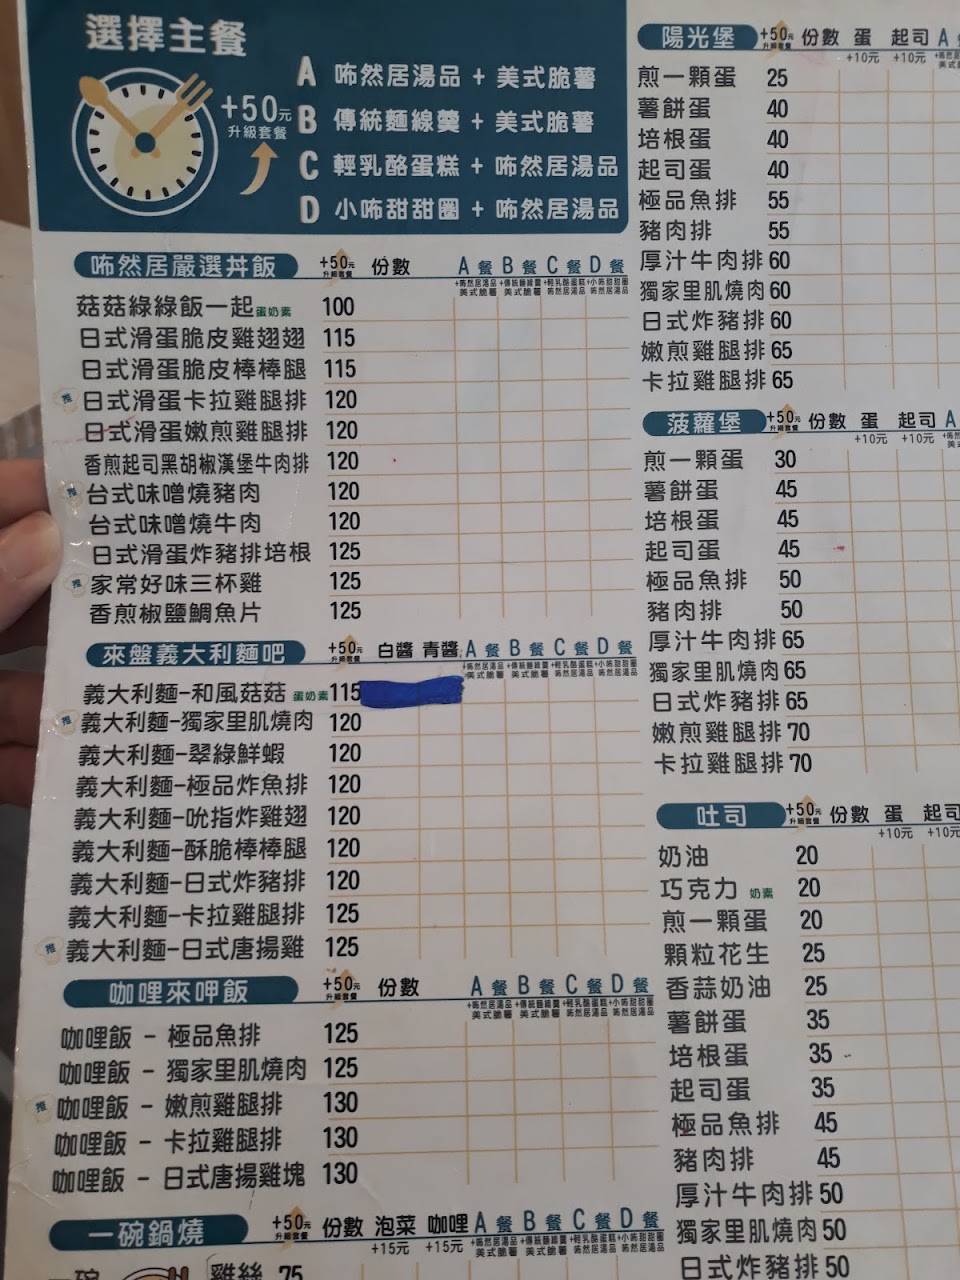 選擇主餐
+50元
升級套餐
A 咘然居湯品 + 美式脆薯
B 傳統麵線羹 + 美式脆薯
C 輕乳酪蛋糕 + 咘然居湯品
D 小咘甜甜圈 + 咘然居湯品
咘然居嚴選丼飯 +50元 升級套餐 份數 A餐 B餐 C餐 D餐
+咘然居湯品 美式脆薯 +傳統麵線羹 美式脆薯 +輕乳酪蛋糕 咘然居湯品 +小咘甜甜圈 咘然居湯品
菇菇綠綠飯一起 蛋奶素 100
日式滑蛋脆皮雞翅翅 115
日式滑蛋脆皮棒棒腿 115
推 日式滑蛋卡拉雞腿排 120
日式滑蛋嫩煎雞腿排 120
香煎起司黑胡椒漢堡牛肉排 120
推 台式味噌燒豬肉 120
台式味噌燒牛肉 120
日式滑蛋炸豬排培根 125
推 家常好味三杯雞 125
香煎椒鹽鯛魚片 125
來盤義大利麵吧 +50元 升級套餐 白醬 青醬 A餐 B餐 C餐 D餐
+咘然居湯品 美式脆薯 +傳統麵線羹 美式脆薯 +輕乳酪蛋糕 咘然居湯品 +小咘甜甜圈 咘然居湯品
義大利麵-和風菇菇 蛋奶素 115
推 義大利麵-獨家里肌燒肉 120
義大利麵-翠綠鮮蝦 120
義大利麵-極品炸魚排 120
義大利麵-吮指炸雞翅 120
義大利麵-酥脆棒棒腿 120
義大利麵-日式炸豬排 120
義大利麵-卡拉雞腿排 125
推 義大利麵-日式唐揚雞 125
咖哩來呷飯 +50元 升級套餐 份數 A餐 B餐 C餐 D餐
+咘然居湯品 美式脆薯 +傳統麵線羹 美式脆薯 +輕乳酪蛋糕 咘然居湯品 +小咘甜甜圈 咘然居湯品
咖哩飯 - 極品魚排 125
咖哩飯 - 獨家里肌燒肉 125
推 咖哩飯 - 嫩煎雞腿排 130
咖哩飯 - 卡拉雞腿排 130
咖哩飯 - 日式唐揚雞塊 130
一碗鍋燒 +50元 升級套餐 份數 泡菜 咖哩 A餐 B餐 C餐 D餐
+15元 +15元 +咘然居湯品 美式脆薯 +傳統麵線羹 美式脆薯 +輕乳酪蛋糕 咘然居湯品 +小咘甜甜圈 咘然居湯品
一碗 雞絲 75
陽光堡 +50元 升級套餐 份數 蛋 起司 A
+10元 +10元
煎一顆蛋 25
薯餅蛋 40
培根蛋 40
起司蛋 40
極品魚排 55
豬肉排 55
厚汁牛肉排 60
獨家里肌燒肉 60
日式炸豬排 60
嫩煎雞腿排 65
卡拉雞腿排 65
菠蘿堡 +50元 升級套餐 份數 蛋 起司 A
+10元 +10元
煎一顆蛋 30
薯餅蛋 45
培根蛋 45
起司蛋 45
極品魚排 50
豬肉排 50
厚汁牛肉排 65
獨家里肌燒肉 65
日式炸豬排 65
嫩煎雞腿排 70
卡拉雞腿排 70
吐司 +50元 升級套餐 份數 蛋 起司
+10元 +10元
奶油 20
巧克力 奶素 20
煎一顆蛋 20
顆粒花生 25
香蒜奶油 25
薯餅蛋 35
培根蛋 35
起司蛋 35
極品魚排 45
豬肉排 45
厚汁牛肉排 50
獨家里肌燒肉 50
日式炸豬排 50